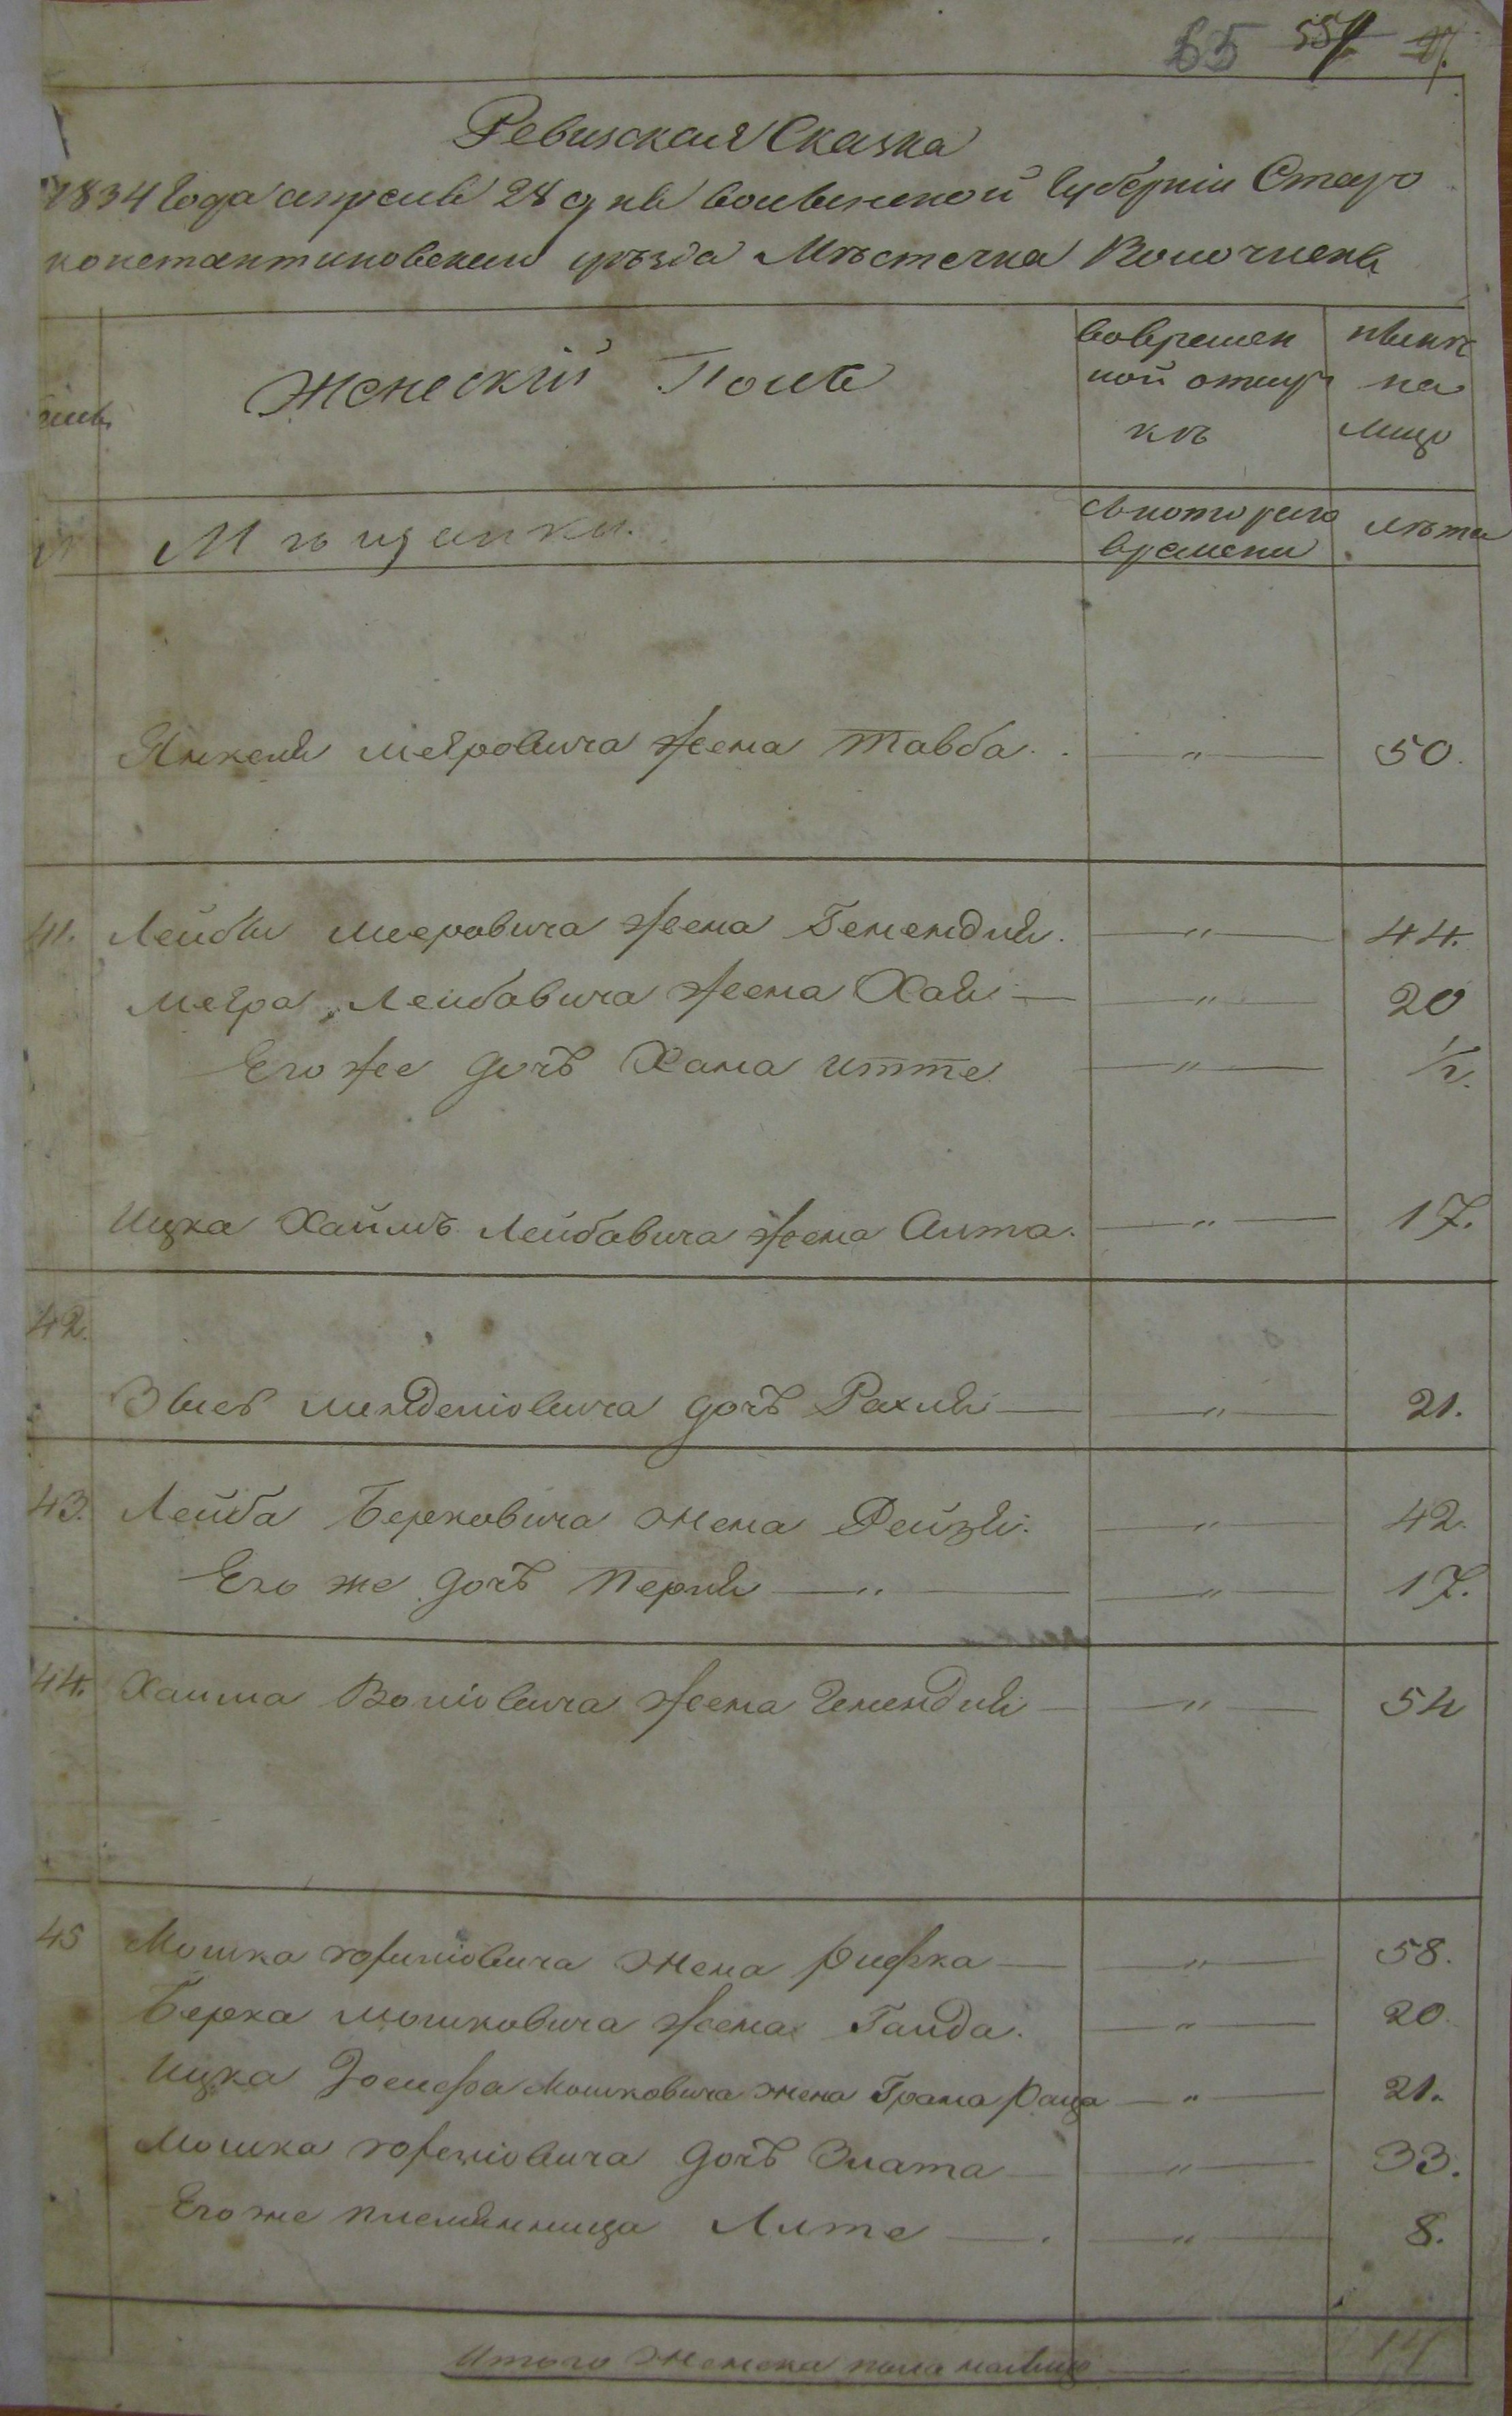 65 554
Ревизская Сказка
1834 года апреля 28 дня Волынской Губерніи Старо
константиновскаго уѣзда Мѣстечка Волочиска
Женескій Полъ
вовремен
ной отлуч
кѣ
нынѣ
на
лицо
Мѣщанки.
съкоторого
времени
лѣта
Янкеля меяровича жена Тавба. " 50.
41. Лейбы мееровича жена Генендля. " 44.
меяра Лейбовича жена Хая " 20
Его же дочь Хана итте " 1/2.
Ицка Хаимъ Лейбовича жена Алта. " 17.
42.
дочь Рахиля " 21.
43. Лейба Берковича жена Рейзя. " 42.
Его же дочь Перля " " 17.
44. Хаима Волiовича жена Генендля " 54
45 Мошка жена рифка " 58.
Берка мошковича жена Галда. " 20.
Ицка Іосифа Мошковича жена раца " 21.
Мошка дочь Злата " 33.
Его же племянница Алте " 8.
Итого женска пола налицо 14